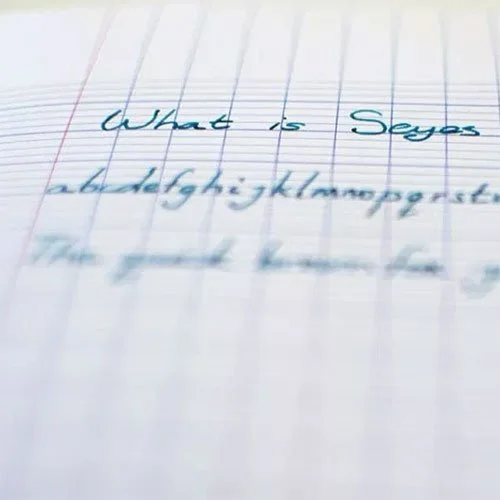 What is Seyes
abcdefghijklmnopqrst
The quick brown fox